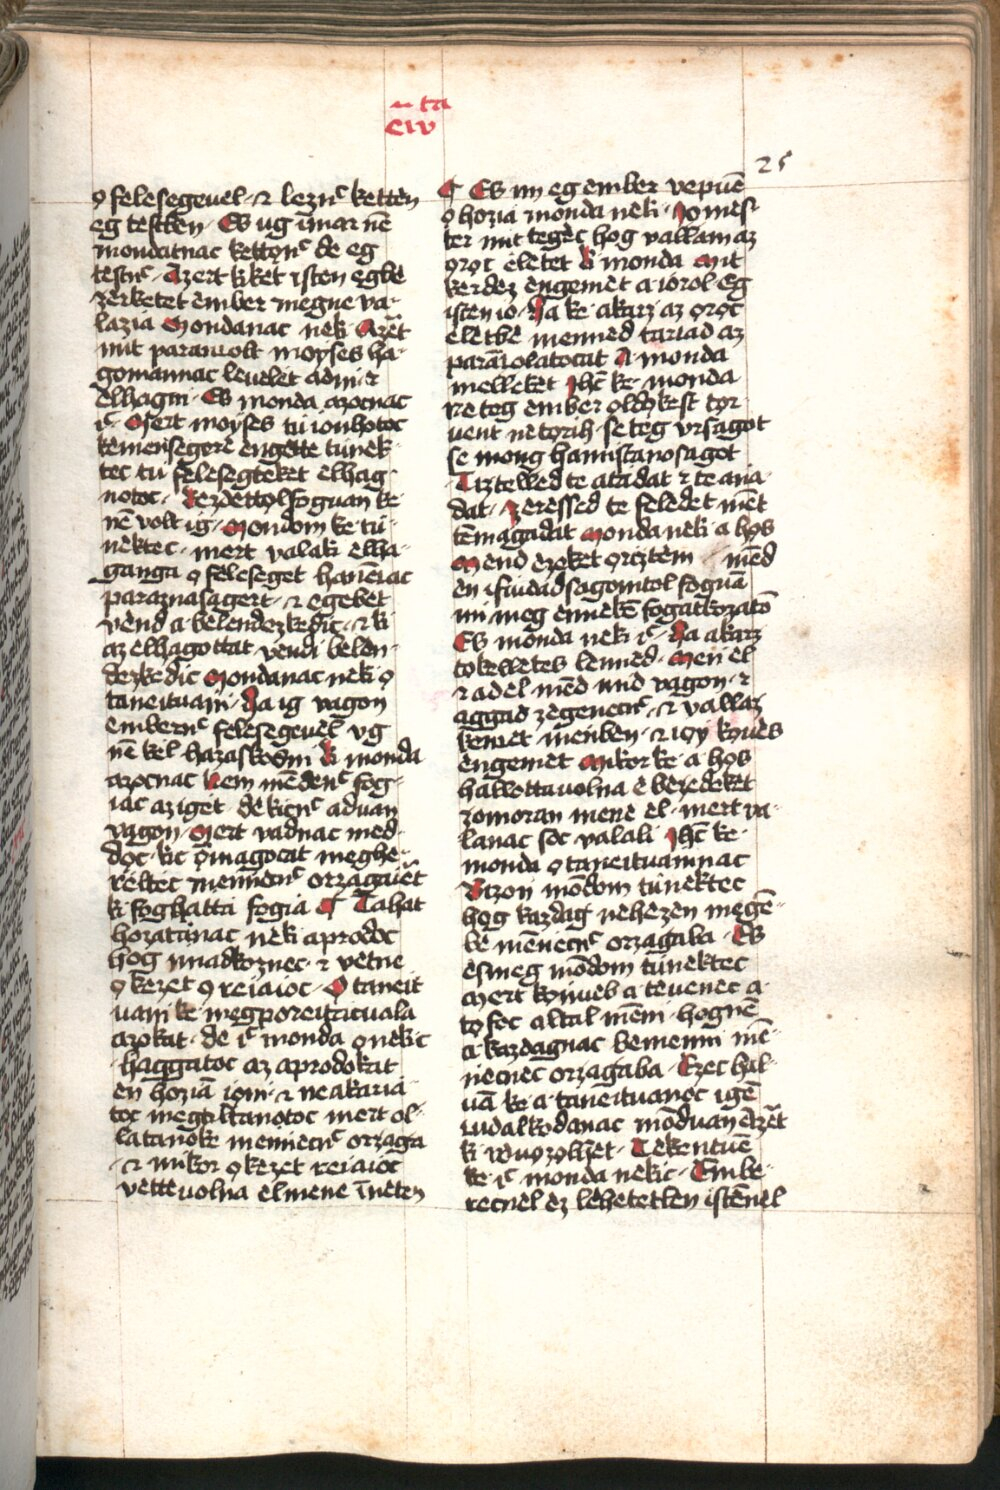 ta
civ
25
o̗ feleſegeuel · ⁊ lezn̄c kettèn
eg teſtben · Es ug īmar nē
mondatnac kettonc̄ de eg
teſtnc̄ · Azert kiket iſten egbè
zerketet ember megne va-
lazia Mondanac nèki Azèt
mit parāiolt moyſes ha-
gomannac leuelèt adni ⁊
èlhagni · Es monda azocnac
ic̄ · Mert moyſes tu iouhotoc
kemènſegerè engètte tùnèk-
tec tu feleſegteket èlhag-
notoc · Kezdetto̗lfoguan ke
nē volt ig · Mondom ke tù-
nèktec · mert valaki èlha-
gangia o̗ feleſeget hanēiac
paraznaſagert · ⁊ egebet
vènd a belendezkèdic · ⁊ ki
az èlhagottat vendi belen-
dezkèdic Mondanac nèki o̗
taneituani · Ha ig vagon
embernc̄ feleſegeuel vg
nē kèl hazaſkodni Ki monda
azocnac Nem mèdènc̄ fog-
iac az iget dè kicnc̄ aduan
vagon · Mert vadnac mèd-
do̗c · kic o̗nmagocat meghe-
rèltèc mènnecnc̄ orzagaiēt
ki foghatta fogia ¶ Tahat
hozatānac nèki aprodoc
hog imadkoznèc · ⁊ vètnè
o̗ kèzèt o̗ reiaioc · O̗ taneit
uani ke megporeitaiuala
azokat · de ic̄ monda o̗nèkic
haggatoc az aprodokat
èn hoziā io̗ni · ⁊ ne akaria-
toc megtiltanotoc mert ol-
latanoke mènnecnc̄ orzaga
· ⁊ mikor o̗ kezet reiaioc
vètteuolna èlmène īnètèn
¶ Es imè eg ember vèpuē
o̗ hozia monda nèki · Io meſ-
ter mit tegèc hog vallam az
o̗ro̗c èlètèt Ki monda Mit
kerdez engemèt a iorol Eg
iſten io · Ha ke akarz az o̗ro̗c
èlètbè mènned tariad az
parāiolatocat A monda
mèllekèt Ihc̄ ke · monda
Ne teg ember o̗ldo̗kèſt tor-
uènt ne to̗rih · ſe teg vrſagot
ſe mong hamiſtanoſagot
Tiztèlled te atadat ⁊ te ania-
dat · Zèreſſed te feledèt mēt
tēmagadat Monda nèki a hos
Mènd èzeket o̗riztèm mèd
èn ifiudadſagomtol foguā
mi meg ènnèkē fogatkozatō
Es monda nèki ic̄ · Ha akarz
to̗kelletes lènned · Mèn èl
⁊ ad èl mēd mid vagon · ⁊
aggad zegenècnc̄ · ⁊ vallaz
kènčèt mènben · ⁊ io̗y ko̗ueſ
engemèt Mikor ke · a hos
hallottauolna è bèzedèkèt
zomoran mènè èl · mert va-
lanac ſoc valali Ihc̄ ke ·
monda o̗ taneituaninac
Bizon mōdom tùnèktèc
hog kazdag nehezen mēgē-
bè mènnecnc̄ orzagaba · Es
eſmeg mōdom tùnèktèc
Mert ko̗nnieb a tèuenec a
to̗ foc altal mēni · hognē
a kazdagnac bèmènni mē-
necnèc orzagaba · Ezec hal-
uā ke a taneituanoc igēn
čudalkodanac mōduan Ezèt
ki iduo̗zo̗lhèt · Tèkentuē
ke ic̄ monda nekic · Embe-
rècnel èz lèhètètlèn iſtēnèl